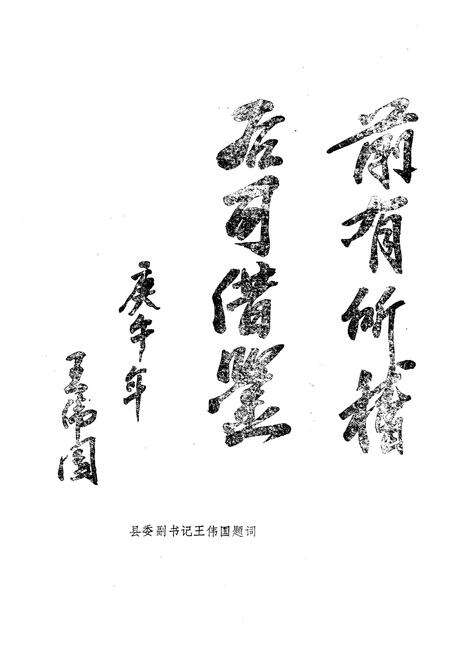 前有所稽
后可借鉴
庚午年
王伟国
县委副书记王伟国题词